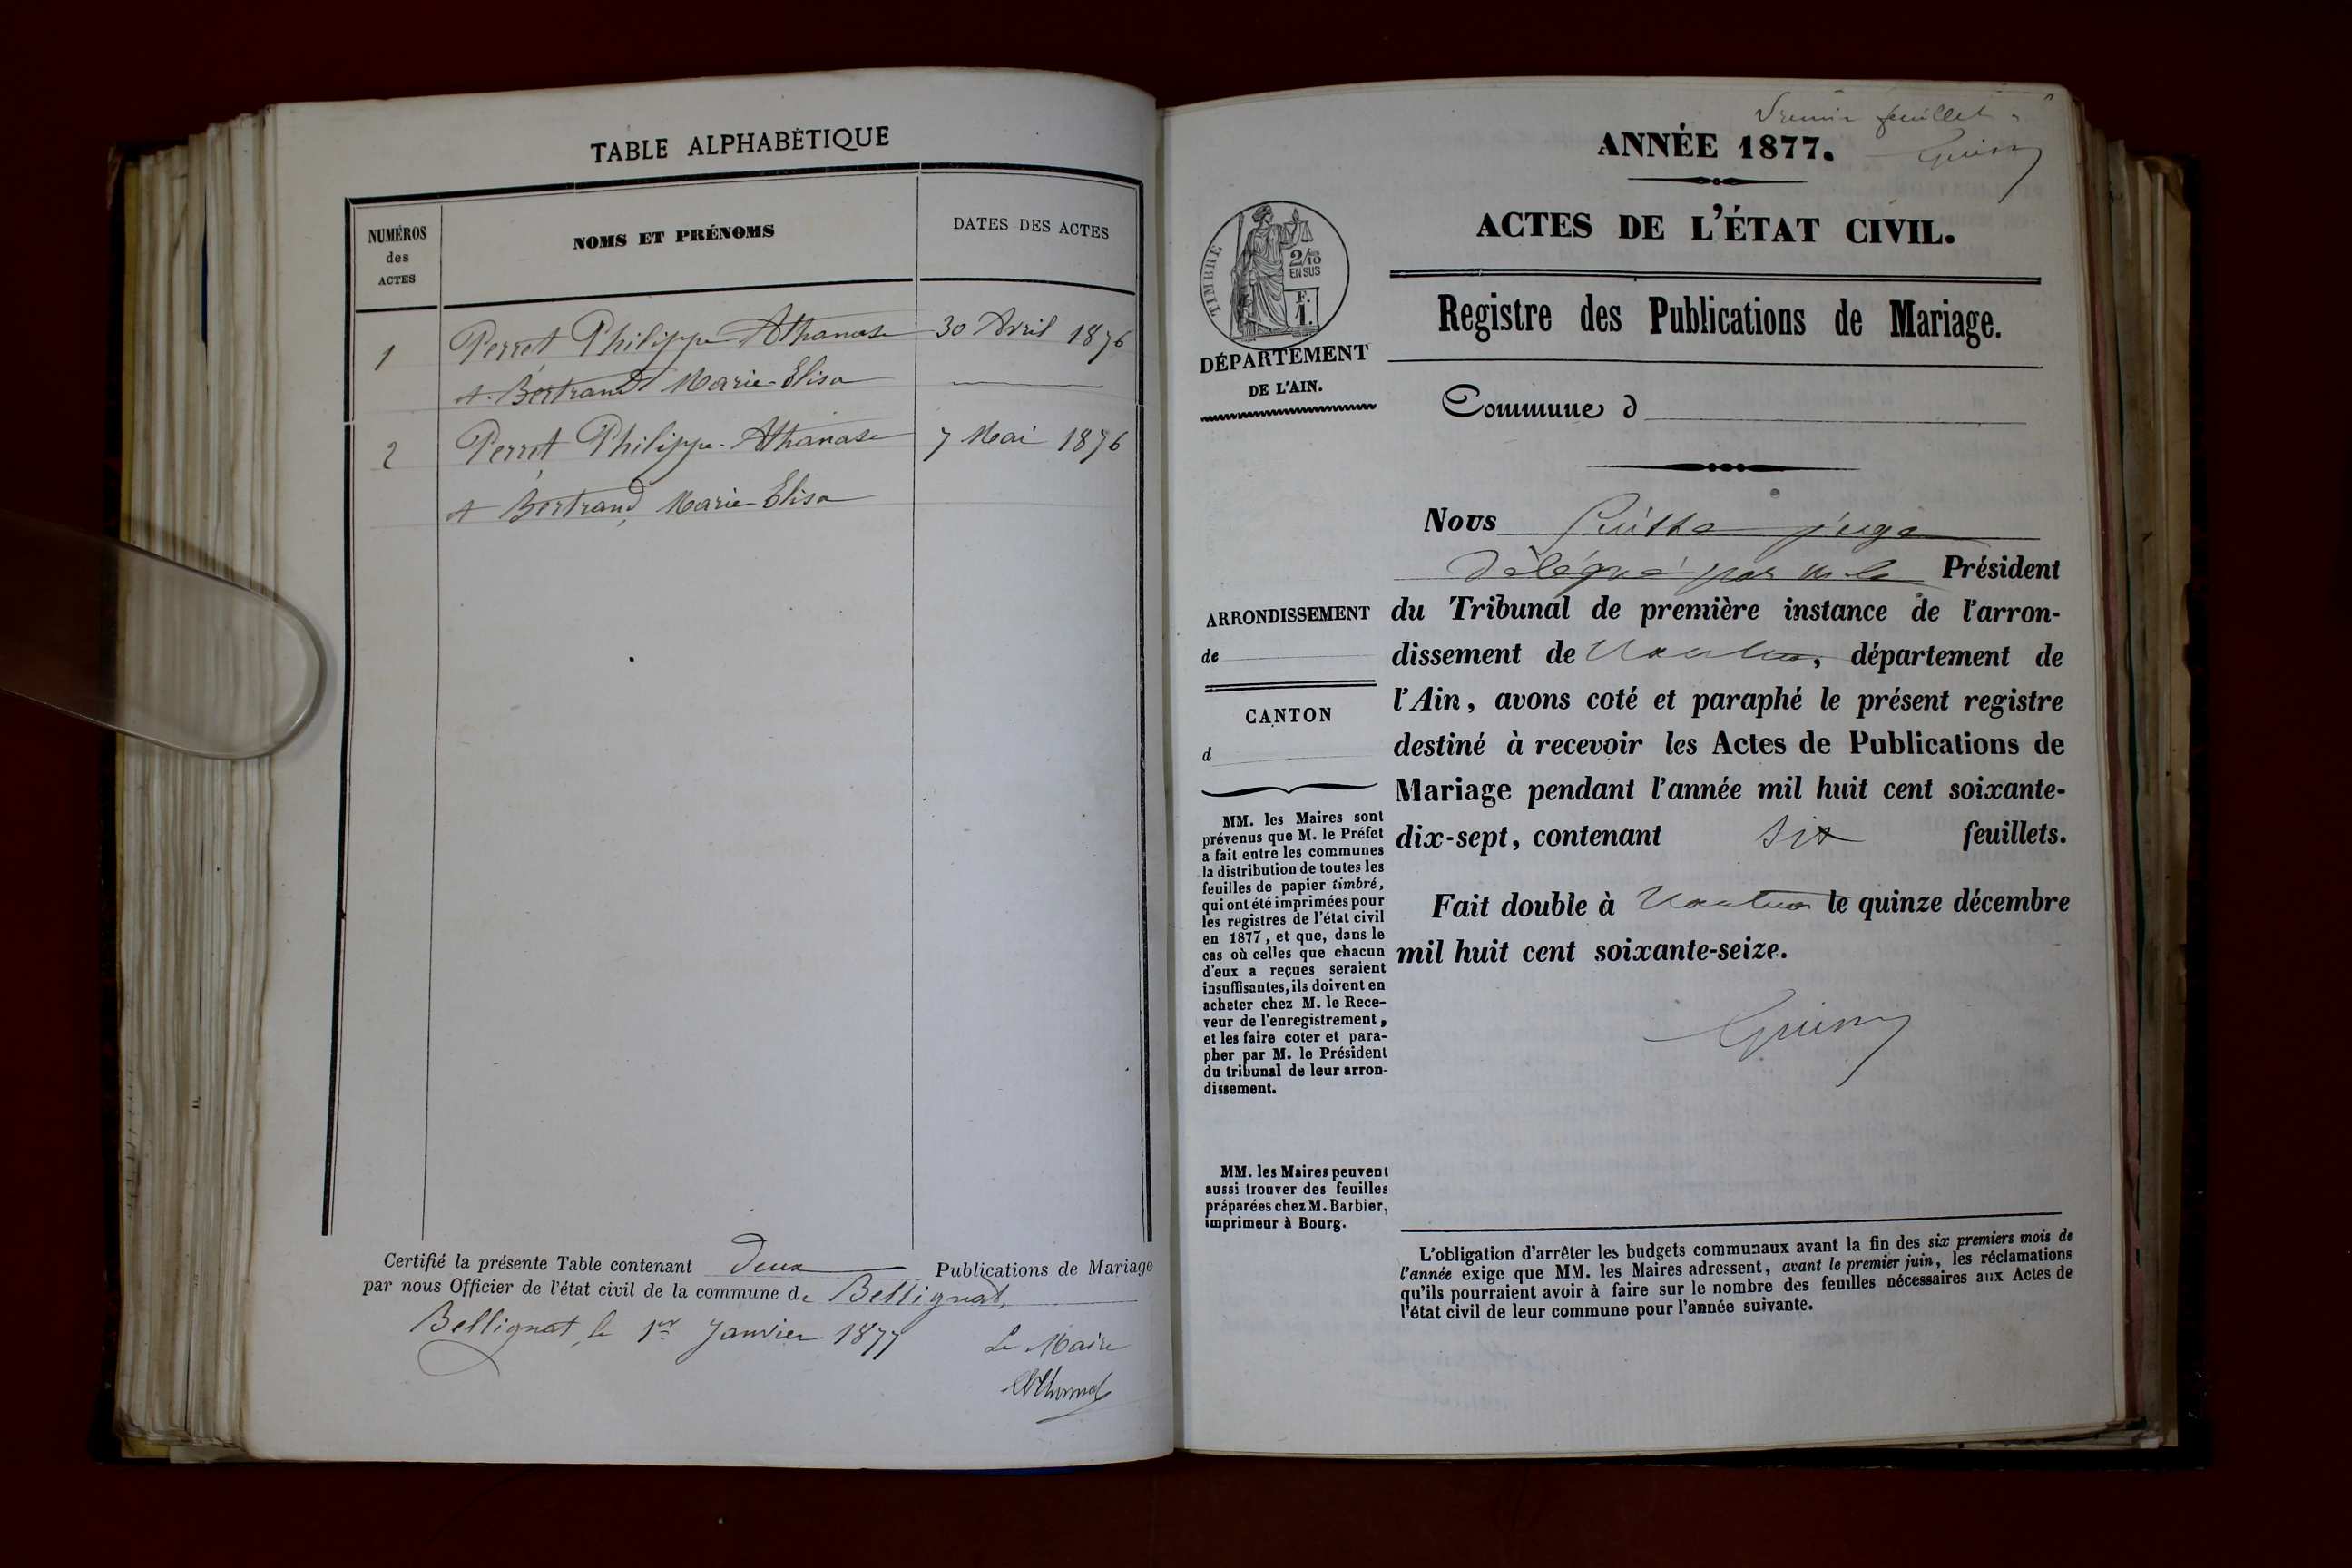 TABLE ALPHABÉTIQUE
NUMÉROS
des
ACTES
NOMS ET PRÉNOMS
DATES DES ACTES
1
Perret Philippe Athanase
30 Avril 1876
et Bertrand Marie-Elisa
2
Perret Philippe-Athanase
7 Mai 1876
et Bertrand, Marie-Elisa
Certifié la présente Table contenant deux Publications de Mariage
par nous Officier de l'état civil de la commune de Bellignat,
Bellignat, le 1er Janvier 1877
Le Maire
Premier feuillet
ANNÉE 1877.
ACTES DE L'ÉTAT CIVIL.
TIMBRE
2/10
EN SUS
F.
1.
DÉPARTEMENT
DE L'AIN.
Registre des Publications de Mariage.
Commune d
Nous juge
délégué par M. le Président
du Tribunal de première instance de l'arron-
dissement de Nantua, département de
l'Ain, avons coté et paraphé le présent registre
destiné à recevoir les Actes de Publications de
Mariage pendant l'année mil huit cent soixante-
dix-sept, contenant six feuillets.
Fait double à Nantua le quinze décembre
mil huit cent soixante-seize.
ARRONDISSEMENT
de
CANTON
d
MM. les Maires sont
prévenus que M. le Préfet
a fait entre les communes
la distribution de toutes les
feuilles de papier timbré,
qui ont été imprimées pour
les registres de l'état civil
en 1877, et que, dans le
cas où celles que chacun
d'eux a reçues seraient
insuffisantes, ils doivent en
acheter chez M. le Rece-
veur de l'enregistrement,
et les faire coter et para-
pher par M. le Président
du tribunal de leur arron-
dissement.
MM. les Maires peuvent
aussi trouver des feuilles
préparées chez M. Barbier,
imprimeur à Bourg.
L'obligation d'arrêter les budgets communaux avant la fin des six premiers mois de
l'année exige que MM. les Maires adressent, avant le premier juin, les réclamations
qu'ils pourraient avoir à faire sur le nombre des feuilles nécessaires aux Actes de
l'état civil de leur commune pour l'année suivante.